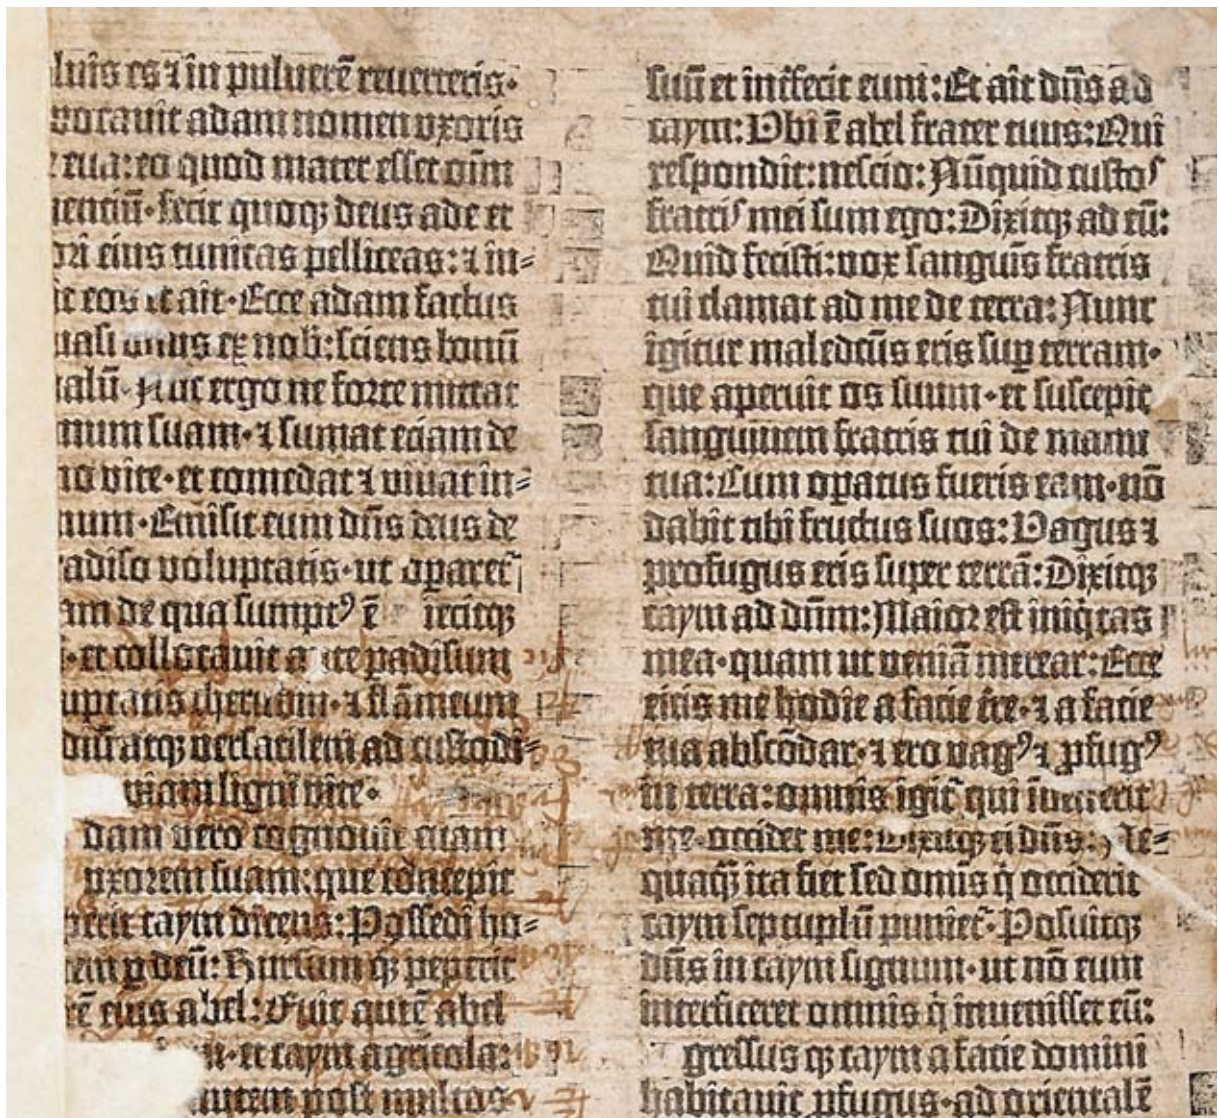 luis es ⁊ in puluerē reuerteris·
vocauit adam nomen vxoris
eua: eo quod mater esset oīm
uentiū· fecit quoqꝫ deus ade et
ori eius tunicas pelliceas: ⁊ in⸗
it eos et ait· Ecce adam factus
uasi vnus ex nob̄: sciens bonū
alū· Nūc ergo ne forte mittat
anum suam· ⁊ sumat eciam de
no vite· et comedat ⁊ viuat in⸗
num· Emisit eum dn̄s deus de
adiso voluptatis· ut oꝑaret᷑
am de qua sumptꝰ ē iecitqꝫ
· et collocauit a te ꝑadisum
uptatis cherubim· ⁊ flāmeum
diū atqꝫ versatilem ad custodi⸗
viam ligni vite·
dam vero cognouit euam
vxorem suam: que concepit
peperit caym dicens: Possedi ho⸗
em ꝑ deū: Rursum qꝫ peperit
rē eius abel: Fuit autē abel
· et caym agricola:
autem post multos
suū et int̄fecit eum: Et ait dn̄s ad
caym: Vbi ē abel frater tuus: Qui
respondit: nescio: Nūquid custos
fratris mei sum ego: Dixitqꝫ ad eū:
Quid fecisti: vox sanguīs fratris
tui clamat ad me de terra: Nunc
igitur maledcūs eris suꝑ terram·
que aperuit os suum· et suscepit
sanguinem fratris tui de manu
tua: Cum oꝑatus fueris eam· nō
dabit tibi fructus suos: Vagus ⁊
profugus eris super terrā: Dixitqꝫ
caym ad dn̄m: Maior est iniqͥtas
mea· quam ut veniā merear: Ecce
eicis me hodie a facie t̄re· ⁊ a facie
tua abscōdar· ⁊ ero vagꝰ ⁊ ꝓfugꝰ
in terra: omnis igit᷑ qui inuenerit
me· occidet me: Dixitqꝫ ei dn̄s: Ne⸗
quaqꝫ̄ ita fiet sed omīs qͥ occiderit
caym septuplū puniet᷑· Posuitqꝫ
dn̄s in caym signum· ut nō eum
interficeret omnis qͥ inuenisset eū:
gressus qꝫ caym a facie domini
habitauit ꝓfugus· ad orientalē